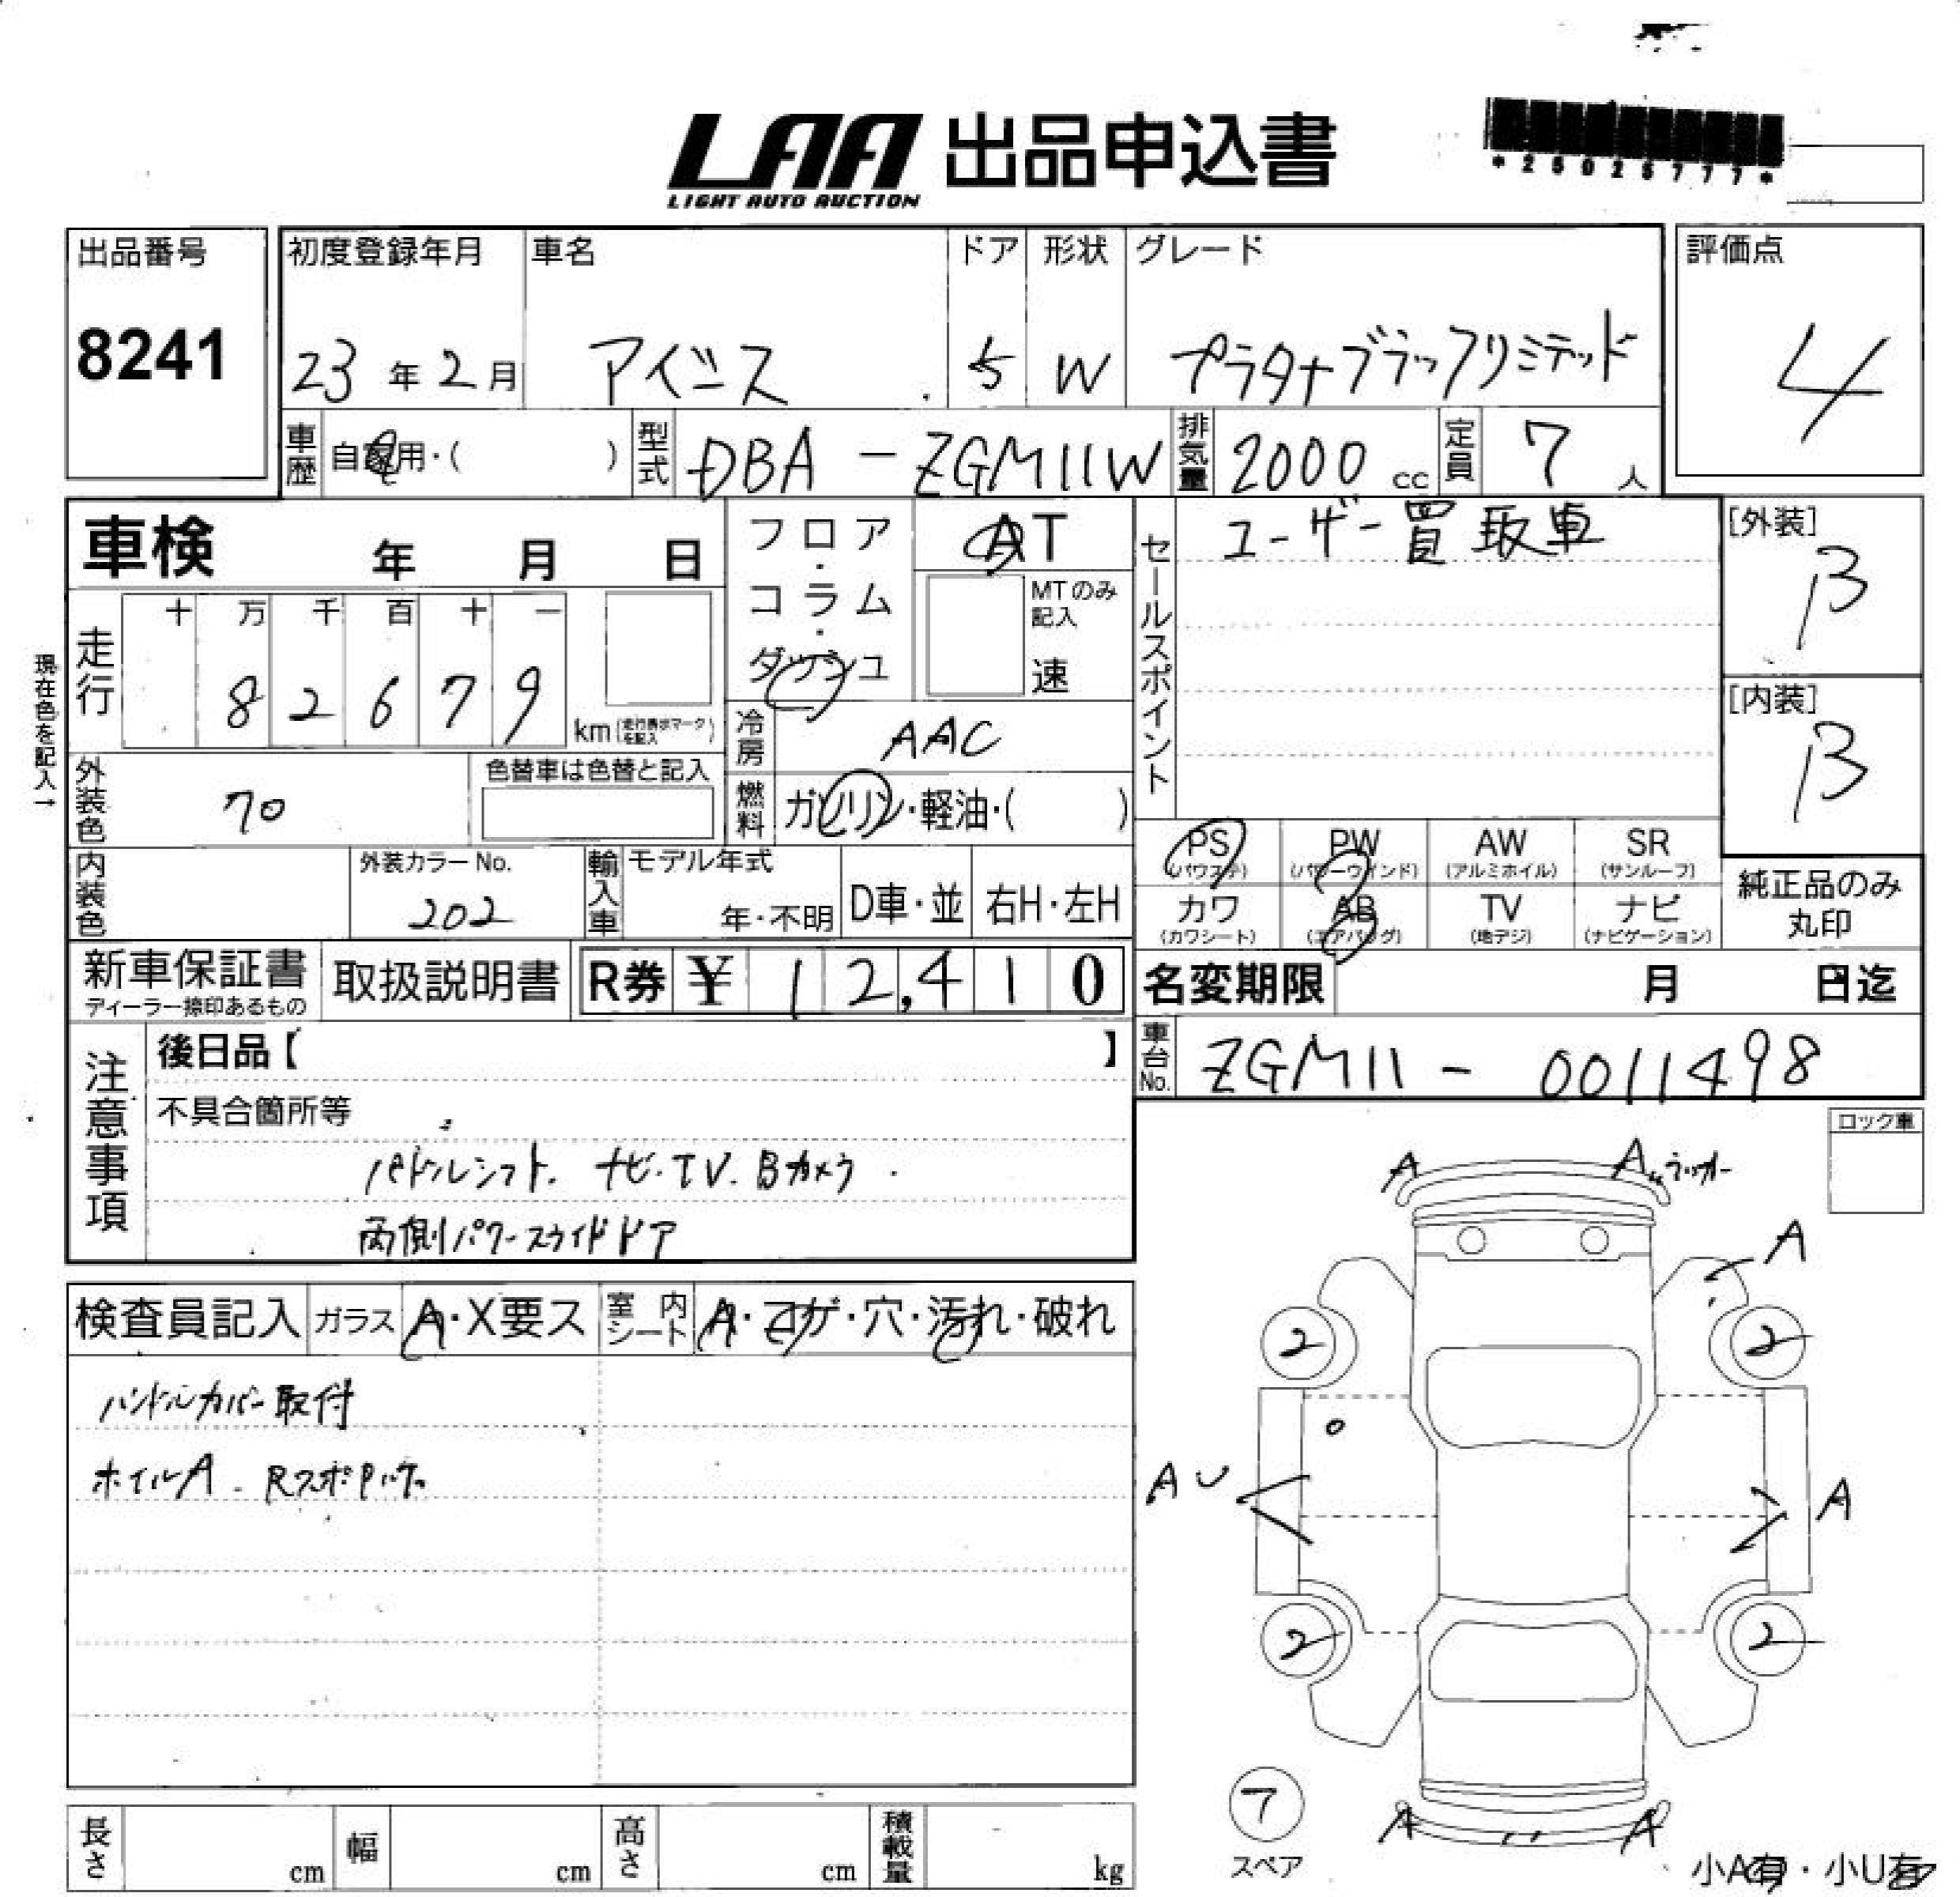 LAA 出品申込書
LIGHT AUTO AUCTION
*25025777*
出品番号
8241
初度登録年月
23年2月
車名
アイシス
ドア
5
形状
W
グレード
プラタナブラックリミテッド
評価点
4
車歴
自家用・( )
型式
DBA-ZGM11W
排気量
2000 cc
定員
7 人
車検 年 月 日
フロア・コラム・ダッシュ
AT
MTのみ記入
速
セールスポイント
ユーザー買取車
[外装]
B
[内装]
B
現在色を記入→
走行
十 万 千 百 十 一
8 2 6 7 9
km (走行表示マークを記入)
冷房
AAC
外装色
70
色替車は色替と記入
燃料
ガソリン・軽油・( )
内装色
外装カラーNo.
202
輸入車
モデル年式
年・不明
D車・並
右H・左H
PS (パワステ)
PW (パワーウインド)
AW (アルミホイル)
SR (サンルーフ)
カワ (カワシート)
AB (エアバッグ)
TV (地デジ)
ナビ (ナビゲーション)
純正品のみ丸印
新車保証書
ディーラー捺印あるもの
取扱説明書
R券 ¥12,410
名変期限 月 日迄
車台No.
ZGM11-0011498
注意事項
後日品【 】
不具合箇所等
パドルシフト. ナビ.TV.Bカメラ.
両側パワースライドドア
ロック車
検査員記入
ガラス
A・X要ス
室内シート
A・コゲ・穴・汚れ・破れ
ハンドルカバー取付
ホイルA.
A
A
A
2
2
AU
A
2
2
7
スペア
A
A
小A有・小U有
長さ cm
幅 cm
高さ cm
積載量 kg